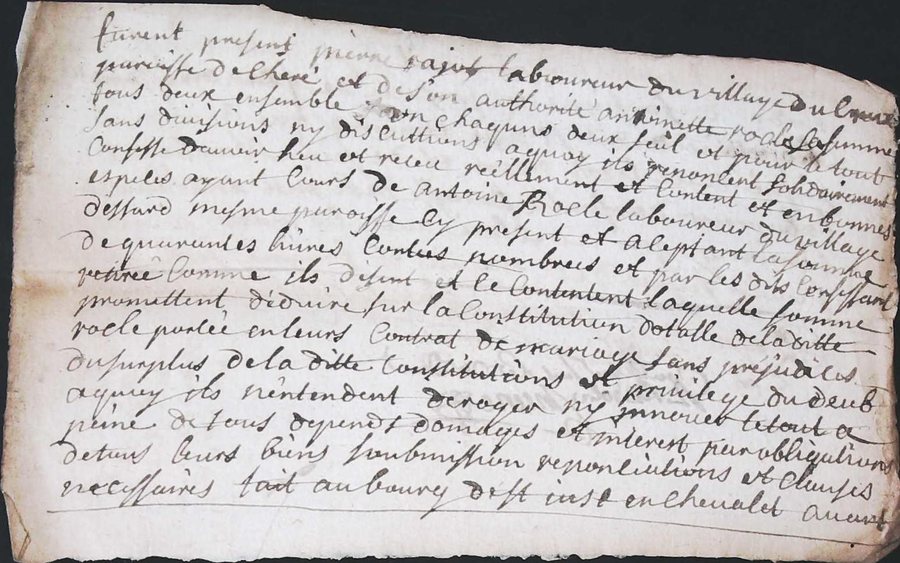 furent present pierre rajot laboureur du village du Creux
paroisse de Cheré et de son authorité antoinette rocle sa femme
tous deux ensemble et un chaquns deux seul et pour le tout
sans divisions ny discuttions a quoy ils renoncent solidairement
Confesse davoir heu et receu réellement et Content et en bonnes
especes ayant Cours de antoine Rocle laboureur du village
dessard mesme paroisse Cy present et aceptant la somme
de quarantes livres Contees nombrees et par les dits Confessant
retirée Comme ils disent et se Contentent laquelle somme
promettent déduire sur la Constitution dotalle de la ditte
rocle portée en leurs Contrat de mariage sans préjudices
du surplus de la ditte Constitutions et privilege du deub
a quoy ils nentendent deroger ny innover le tout a
peine de tous depends domages et interest par obligations
de tous leurs biens soubmission renonciations et Clauses
necessaires fait au bourg de st just en Chevalet avant